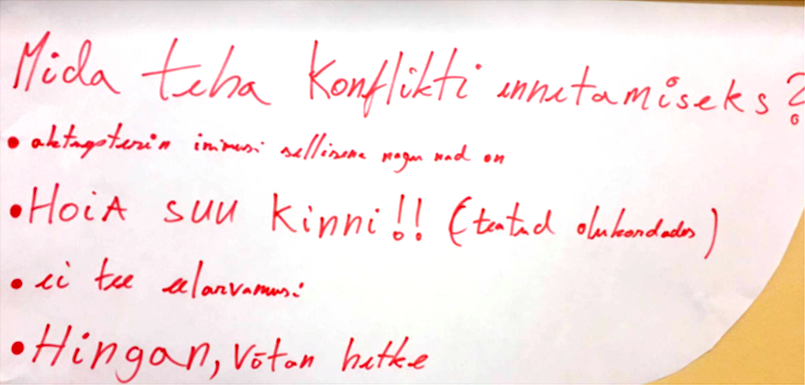 Mida teha konflikti ennetamiseks?
• aktsepteerin inimesi sellisena nagu nad on
• HOiA SUU kinni!! (teatud olukordades)
• ei tee eelarvamusi
• Hingan, võtan hetke